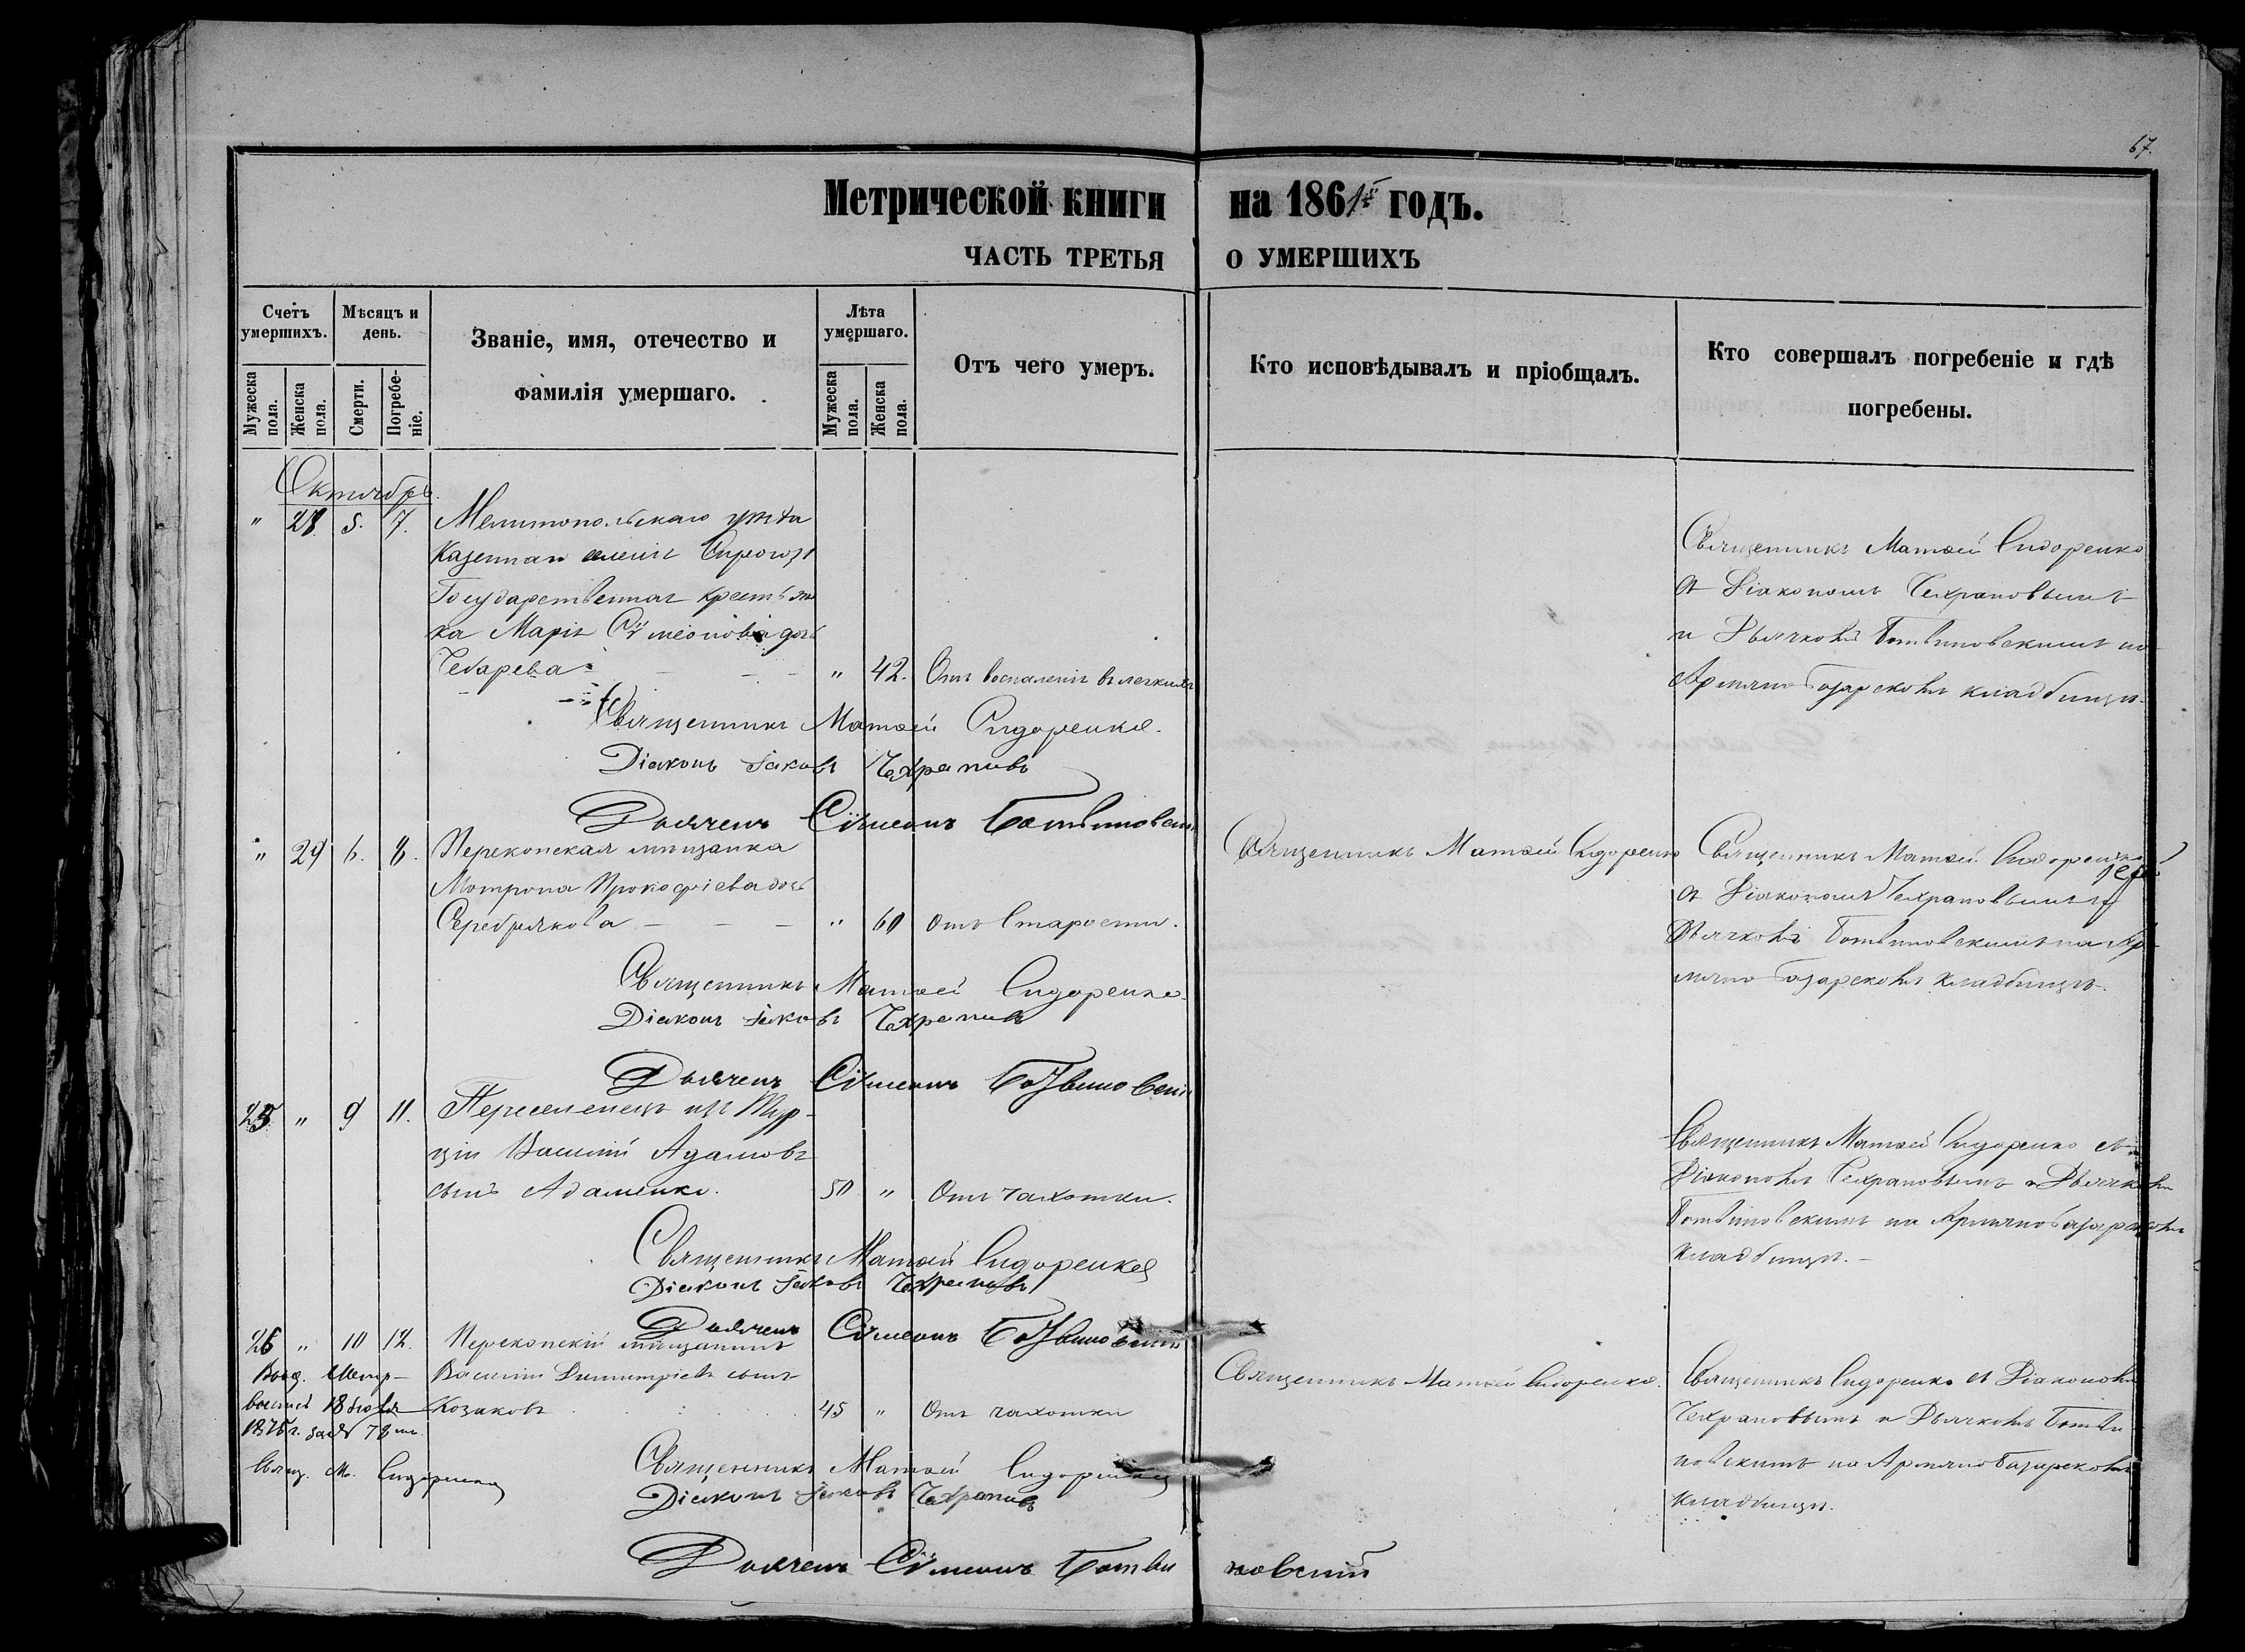 67.
Метрической книги на 1861й годъ.
ЧАСТЬ ТРЕТЬЯ О УМЕРШИХЪ
Счетъ умершихъ.
Мужеска пола.
Женска пола.
Мѣсяцъ и день.
Смерти.
Погребеніе.
Званіе, имя, отечество и
фамилія умершаго.
Лѣта умершаго.
Мужеска пола.
Женска пола.
Отъ чего умеръ.
Кто исповѣдывалъ и пріобщалъ.
Кто совершалъ погребеніе и гдѣ
погребены.
Октябрь.
" 28 5. 7. Мелитопольскаго уѣзда
казеннаго селенія
Государственная крестьян
ка Марія Сѵмеонова дочь
Чебарева " 42. Отъ воспаленія въ легкихъ
Священникъ Матѳей Сидоренко
съ Діакономъ Чехрановымъ
и Дьячкомъ Ботвиновскимъ на
Армяно Базарскомъ кладбищѣ.
Священникъ Матѳей Сидоренко.
Діаконъ Іаковъ Чехрановъ
Дьячекъ Сѵмеонъ Ботвиновскій
" 29 6. 8. Перекопская мѣщанка
Мотрона Прокофіева дочь
Серебрякова " 60 Отъ Старости.
Священникъ Матѳей Сидоренко
Священникъ Матѳей Сидоренко
съ Діакономъ Чехрановымъ и
Дьячкомъ Ботвиновскимъ на Ар-
мяно Базарскомъ кладбищѣ.
Священникъ Матѳей Сидоренко
Діаконъ Іаковъ Чехрановъ
Дьячекъ Сѵмеонъ Ботвиновскій
25 " 9 11. Переселенецъ изъ Тур-
ціи Василій Адамовъ
сынъ Адаменко. 50 " Отъ чахотки.
Священникъ Матѳей Сидоренко съ
Діакономъ Чехрановымъ и Дьячкомъ
Ботвиновскимъ на Армянобазарскомъ
кладбищѣ.
Священникъ Матѳей Сидоренко
Діаконъ Іаковъ Чехрановъ
Дьячекъ Сѵмеонъ Ботвиновскій
26 " 10 12. Перекопскій мѣщанинъ
Василій Димитріевъ сынъ
Козаковъ 45 " Отъ чахотки
Выд. Метр-
18
1875 г. за № 78
Свящ. М. Сидоренко
Священникъ Матѳей Сидоренко.
Священникъ Сидоренко съ Діакономъ
Чехрановымъ и Дьячкомъ Ботви
новскимъ на Армянобазарскомъ
кладбищѣ.
Священникъ Матѳей Сидоренко
Діаконъ Іаковъ Чехрановъ
Дьячекъ Сѵмеонъ Ботвиновскій